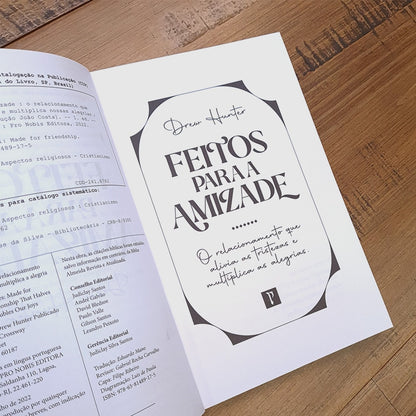 atalogação na Publicação (CIP)
a do Livro, SP, Brasil)
zade : o relacionamento que
multiplica nossas alegrias
ução João Costa]. -- 1. ed. --
: Pro Nobis Editora, 2022.
: Made for friendship.
489-17-5
Aspectos religiosos - Cristianismo
CDD-241.6762
s para catálogo sistemático:
Aspectos religiosos : Cristianismo
62
es da Silva - Bibliotecária - CRB-8/9380
relacionamento
multiplica a alegria
Made for
onship That Halves
ubles Our Joys
rew Hunter Publicado
Crossway
eet
60187
s em língua portuguesa
PRO NOBIS EDITORA
Saldanha 110, Lagoa,
-RJ, 22.461-220
ho de 2022
produção por quaisquer
breves, com indicação
Nesta obra, as citações bíblicas foram extraídas
salvo informação em contrário, da Bíblia
Almeida Revista e Atualizada.
Conselho Editorial
Judiclay Santos
André Galvão
David Bledsoe
Paulo Valle
Gilson Santos
Leandro Peixoto
Gerência Editorial
Judiclay Silva Santos
Tradução: Eduardo Mano
Revisor: Gabriel Rocha Carvalho
Capa: Filipe Ribeiro
Diagramação: Luis de Paula
ISBN: 978-65-81489-17-5
Drew Hunter
FEITOS
PARA A
AMIZADE
O relacionamento que
alivia as tristezas e
multiplica as alegrias.
P